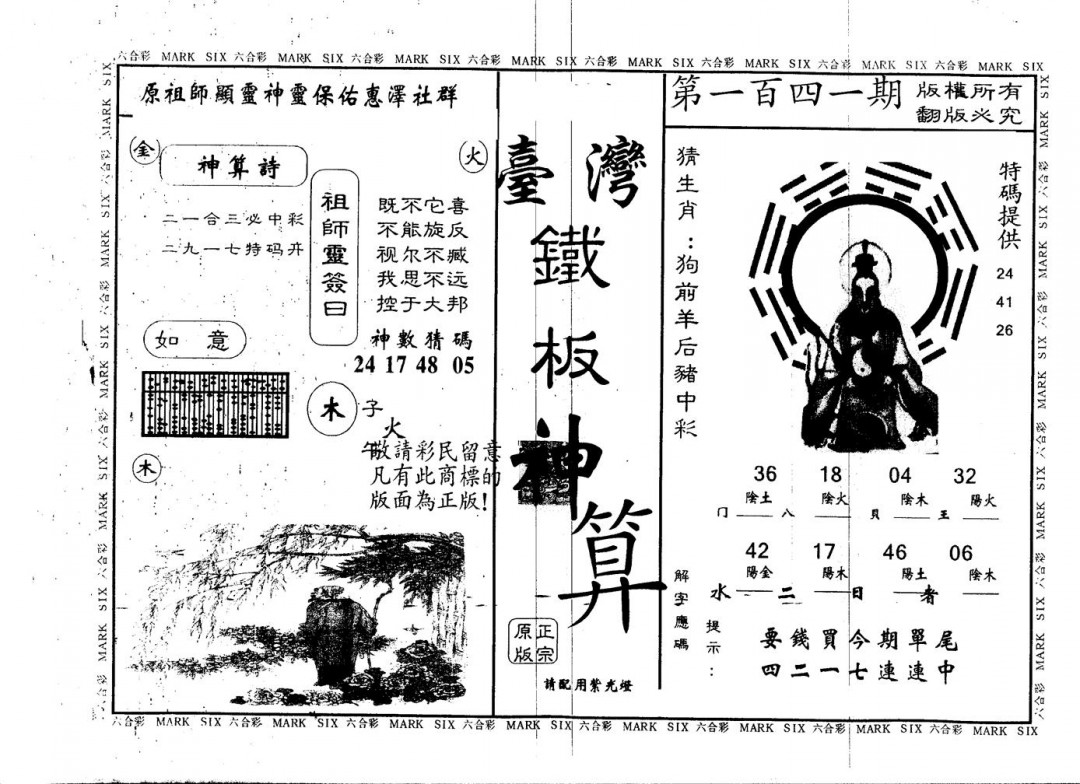 六合彩 MARK SIX 六合彩 MARK SIX 六合彩 MARK SIX 六合彩 MARK SIX 六合彩 MARK SIX 六合彩 MARK SIX 六合彩 MARK SIX 六合彩 MARK SIX
原祖師顯靈神靈保佑惠澤社群
金
神算詩
火
二一合三必中彩
二九一七特码卉
祖師靈簽曰
既不它喜
不能旋反
视尔不臧
我思不远
控于大邦
神數猜碼
24 17 48 05
如意
木
子
火
午
木
敬請彩民留意
凡有此商標的
版面為正版!
臺灣
鐵
板
神
算
正宗
原版
請配用紫光燈
第一百四一期
版權所有
翻版必究
猜生肖:狗前羊后豬中彩
特碼提供
24
41
26
36 18 04 32
陰土 陰火 陰木 陽火
门 八 貝 王
42 17 46 06
陽金 陽木 陽土 陰木
水 二 日 者
解字應碼
提示:
要錢買今期單尾
四二一七連連中
六合彩 MARK SIX 六合彩 MARK SIX 六合彩 MARK SIX 六合彩 MARK SIX 六合彩 MARK SIX 六合彩 MARK SIX 六合彩 MARK SIX 六合彩 MARK SIX